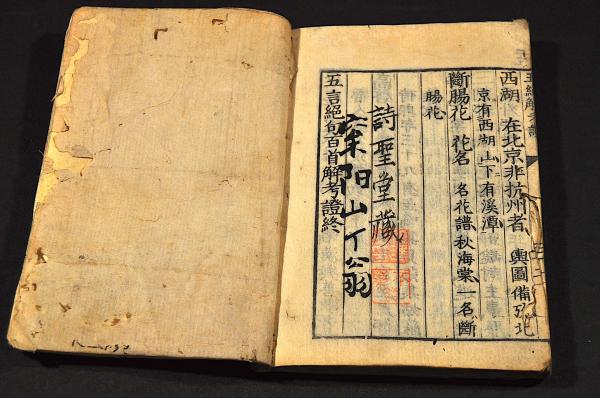 西湖 在北京非杭州者 輿圖備攷北
京有西湖山下有溪潭
斷腸花 花名 名花譜秋海棠一名斷
腸花
詩聖堂藏
山丁翁
五言絕句百首解考證終